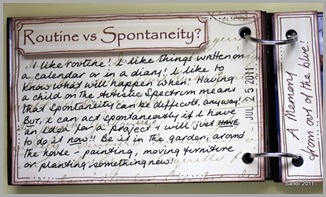 Routine vs Spontaneity?
I like routine! I like things written on
a calendar or in a diary! I like to
know what will happen when! Having
a child on the Autistic Spectrum means
that Spontaneity can be difficult, anyway!
But, I can act spontaneously if I have
an Idea for a project & will just HAVE
to do it now!! Be it in the garden, around
the house - painting, moving furniture
or planting something new!
JUL 25 2011
A Memory
from out of the blue!
Sandi 2011